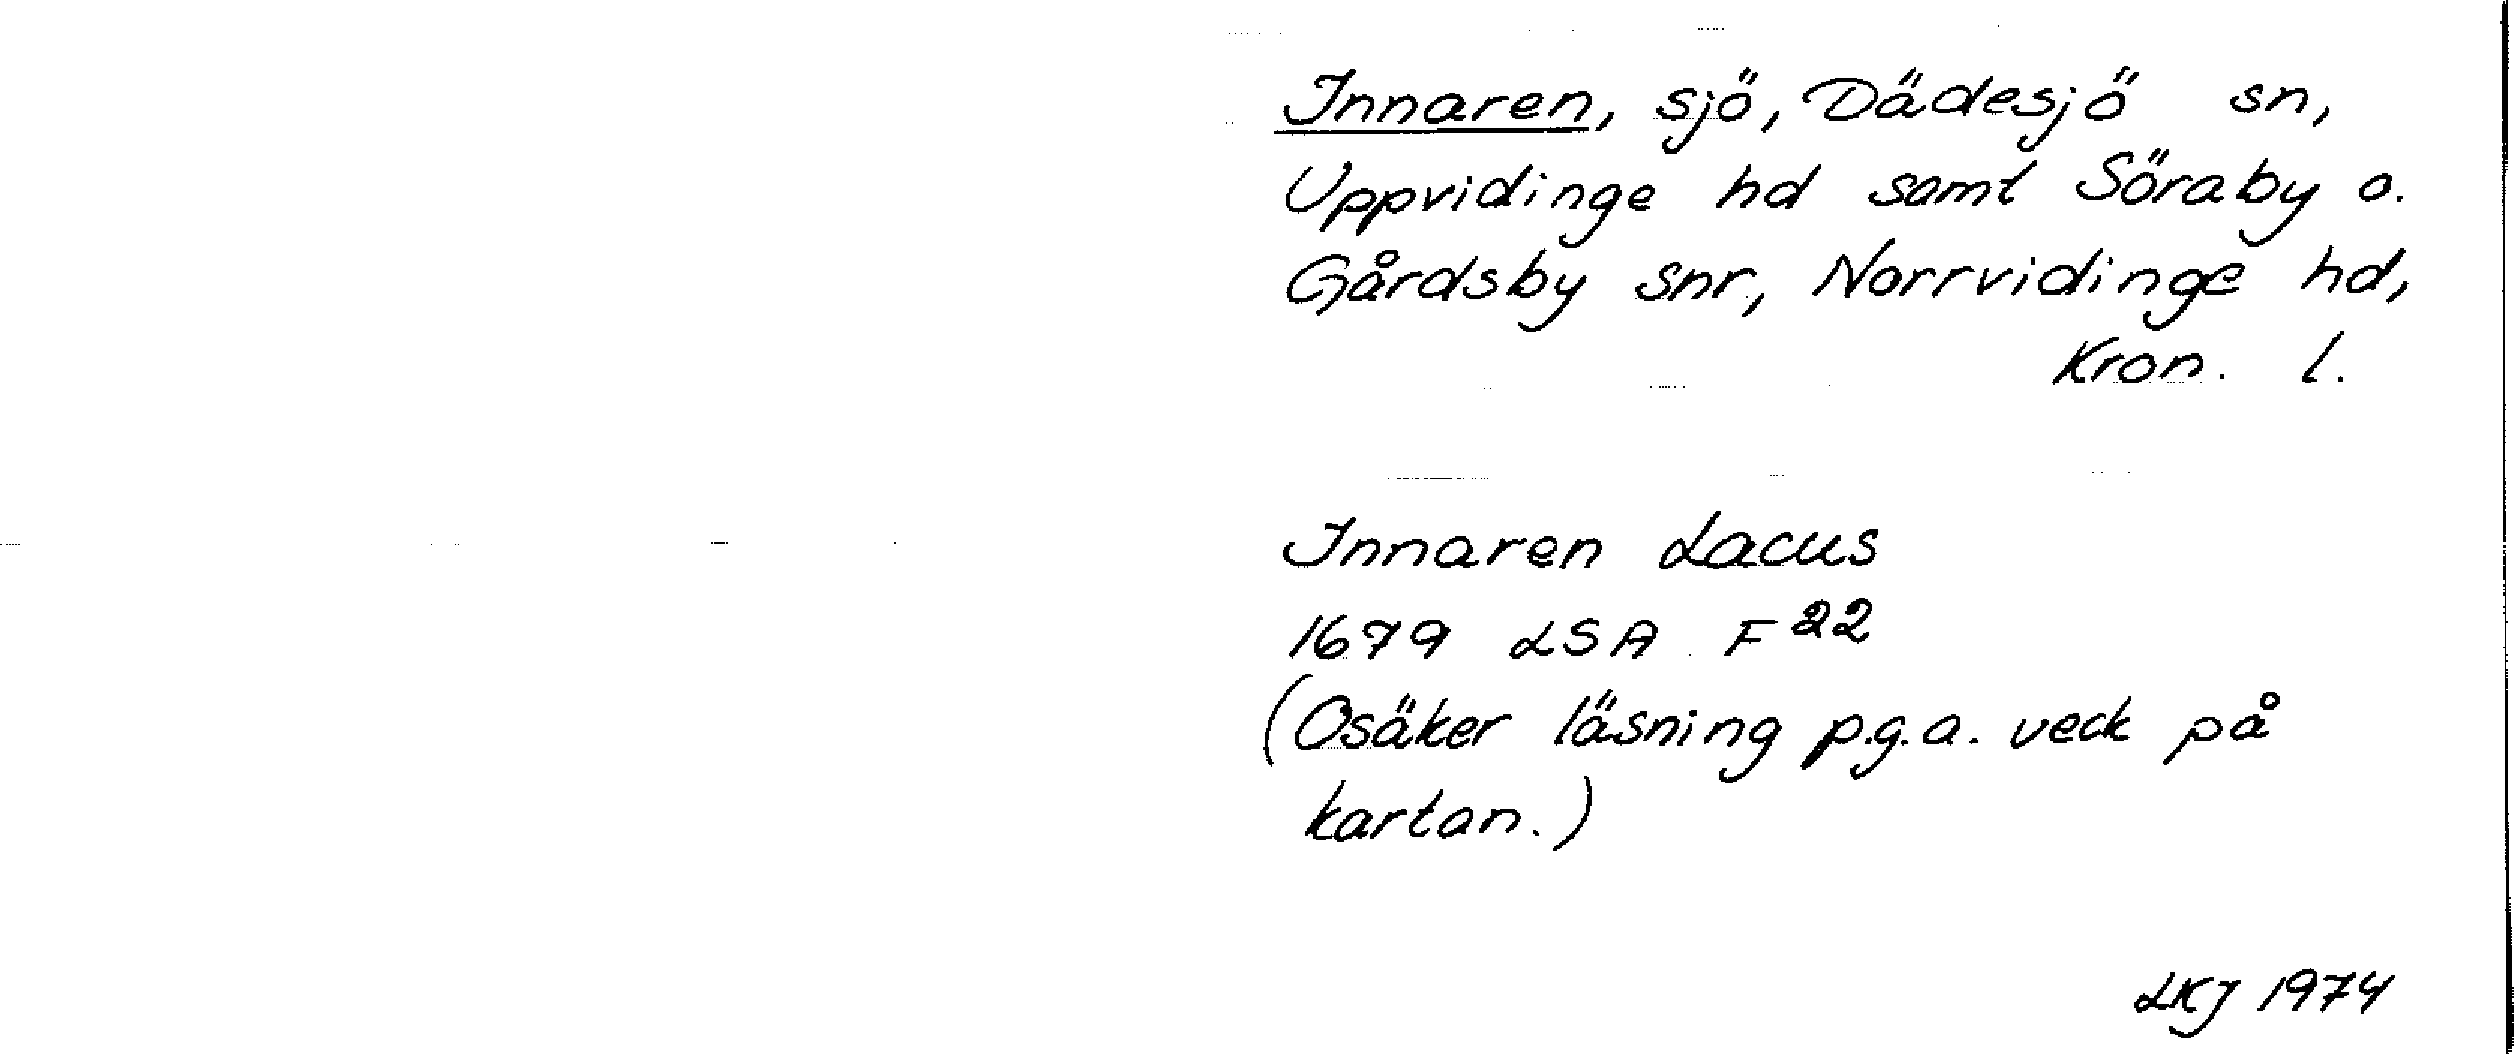 Innaren, sjö, Dädesjö sn,
Uppvidinge hd samt Söraby o.
Gårdsby snr, Norrvidinge hd,
Kron. l.
Innaren Lacus
1679 LSA F22
(Osäker läsning p.g.a. veck på
kartan.)
LKJ 1974